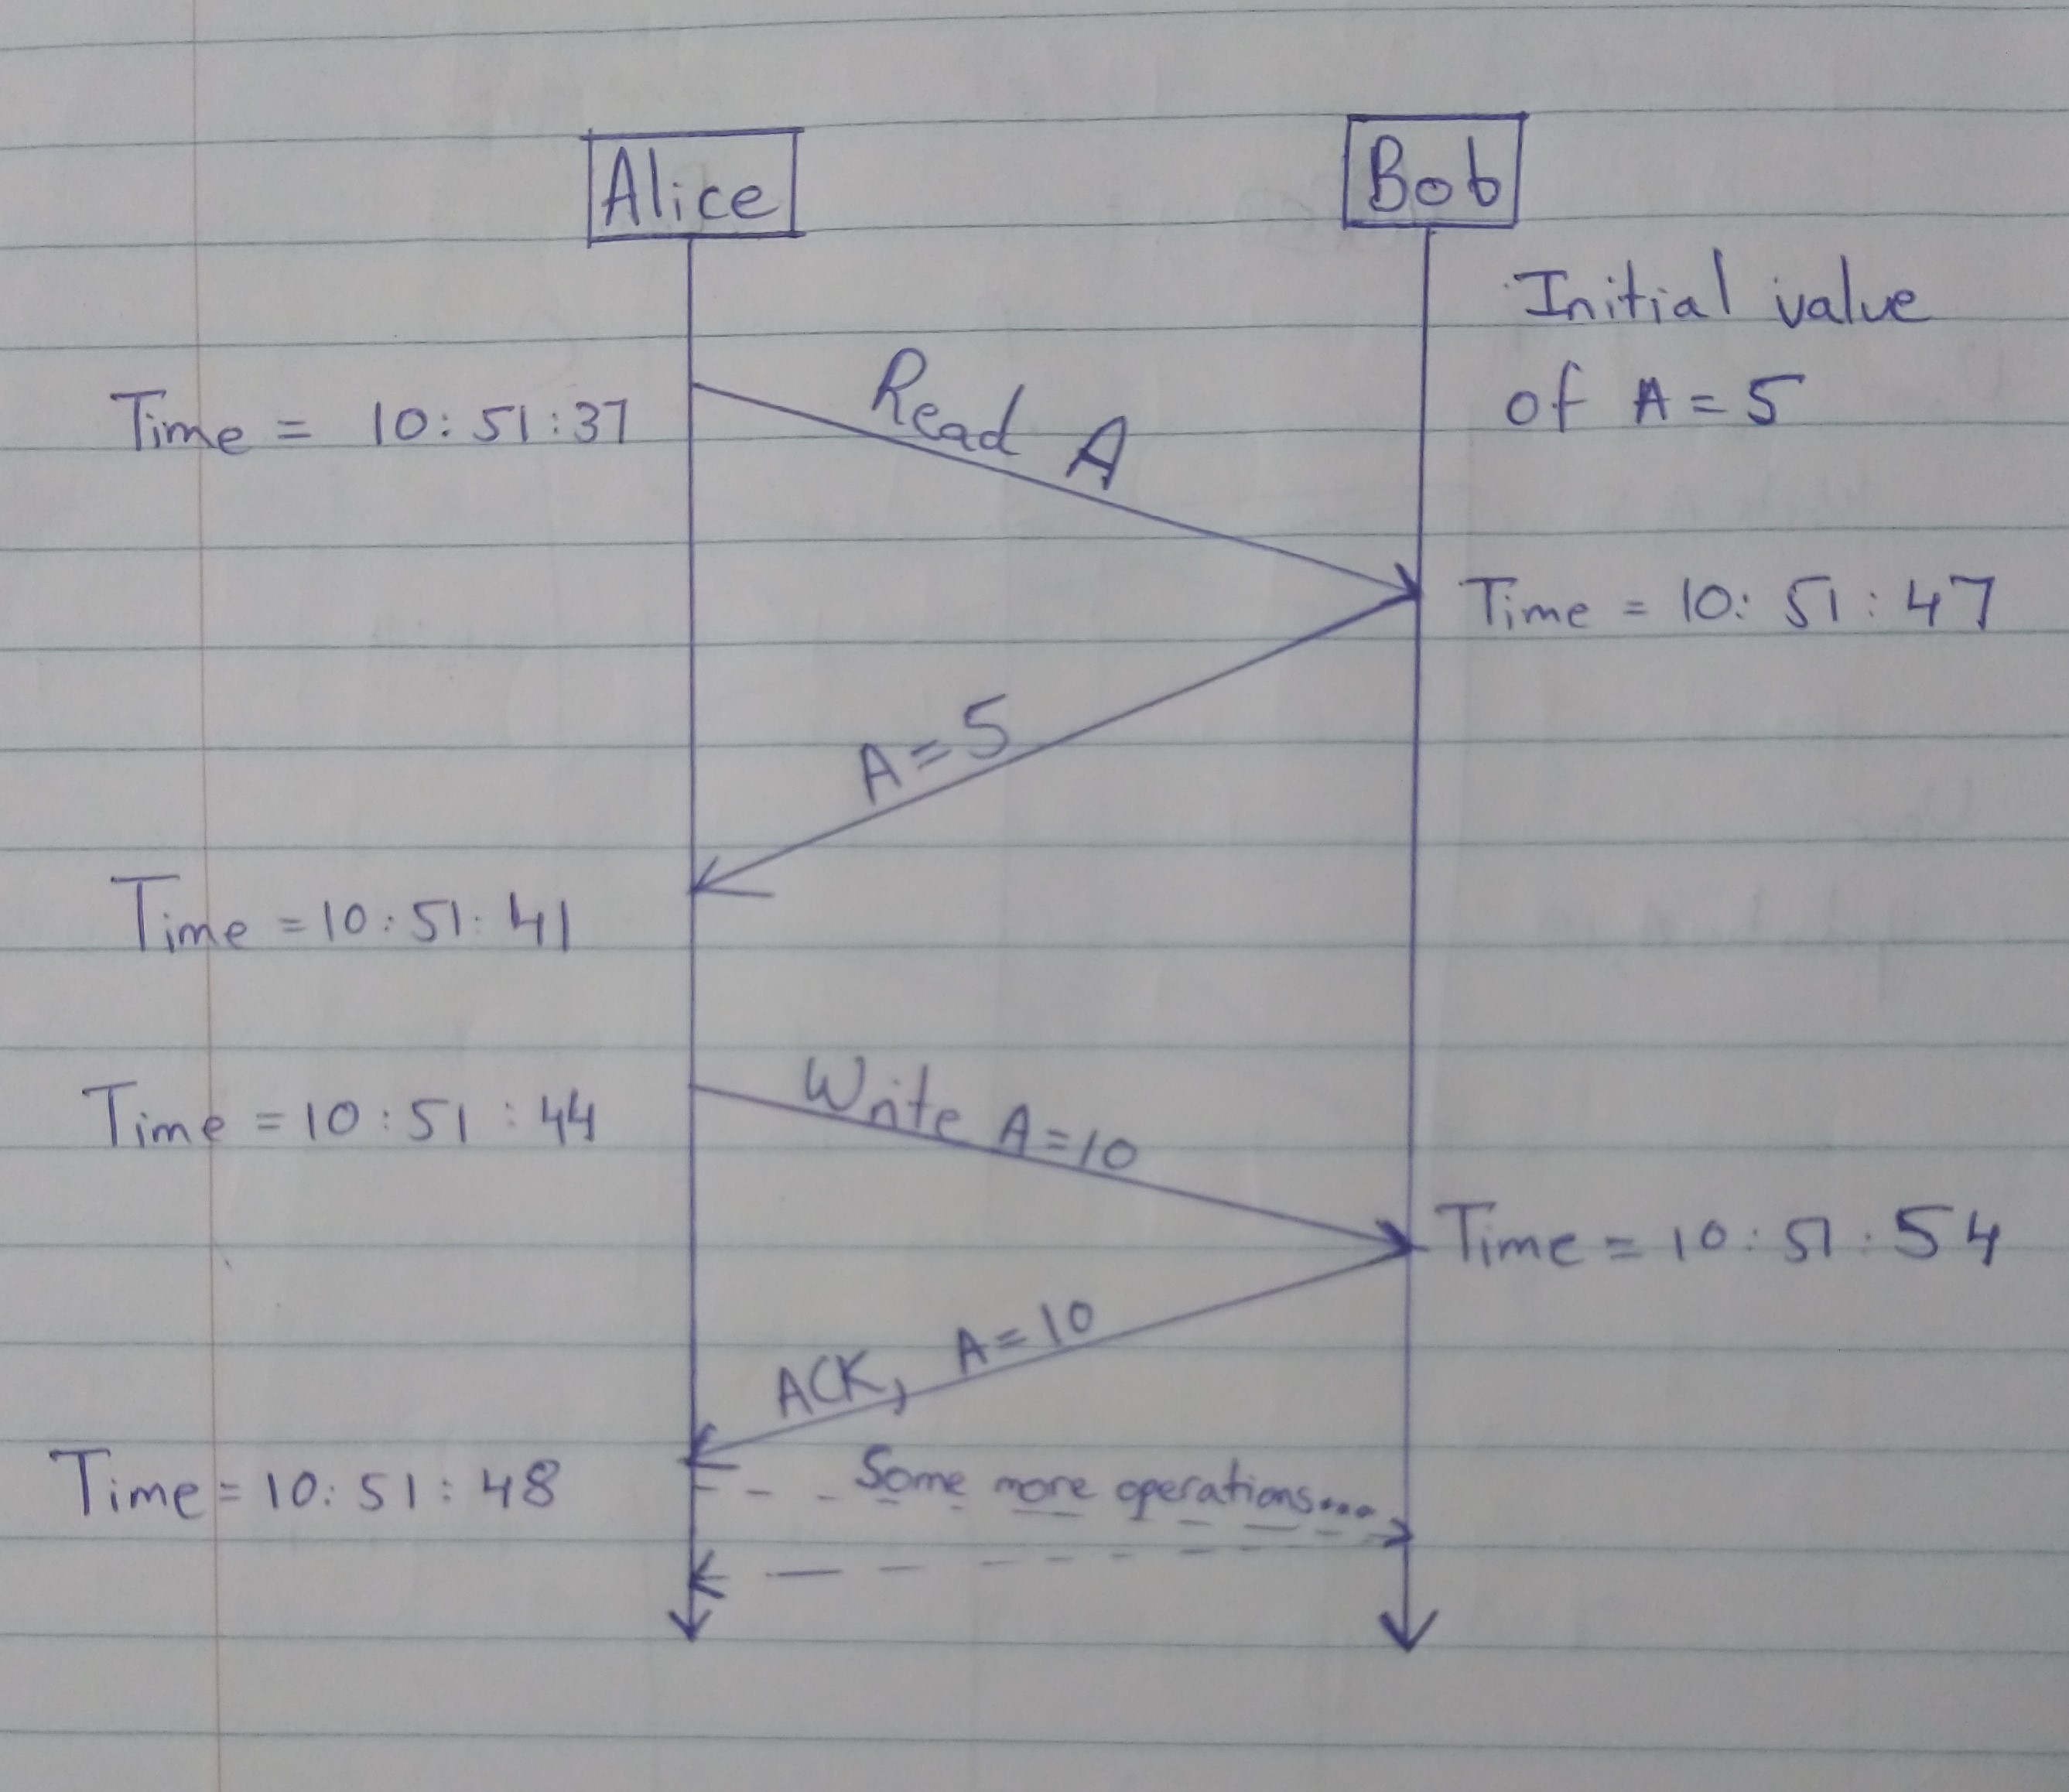 Alice
Bob
Initial value
of A = 5
Time = 10:51:37
Read A
Time = 10:51:47
A=5
Time = 10:51:41
Time = 10:51:44
Write A=10
Time = 10:51:54
ACK, A=10
Time = 10:51:48
Some more operations....